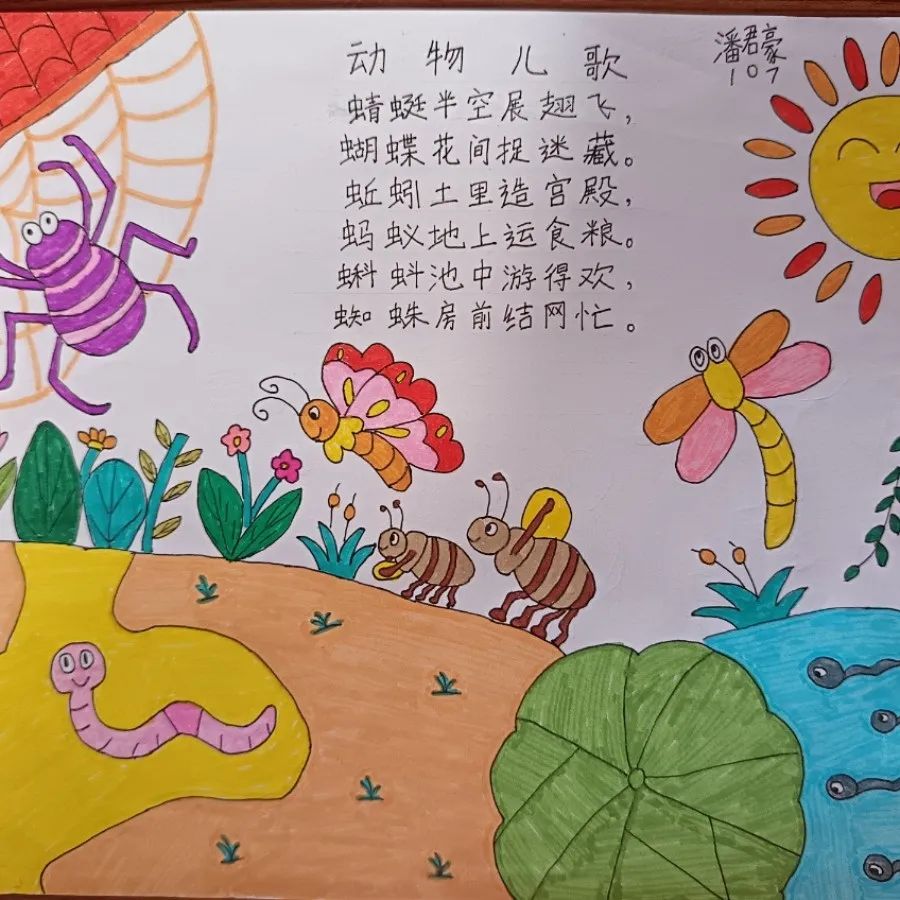 动物儿歌
潘君豪
107
蜻蜓半空展翅飞，
蝴蝶花间捉迷藏。
蚯蚓土里造宫殿，
蚂蚁地上运食粮。
蝌蚪池中游得欢，
蜘蛛房前结网忙。